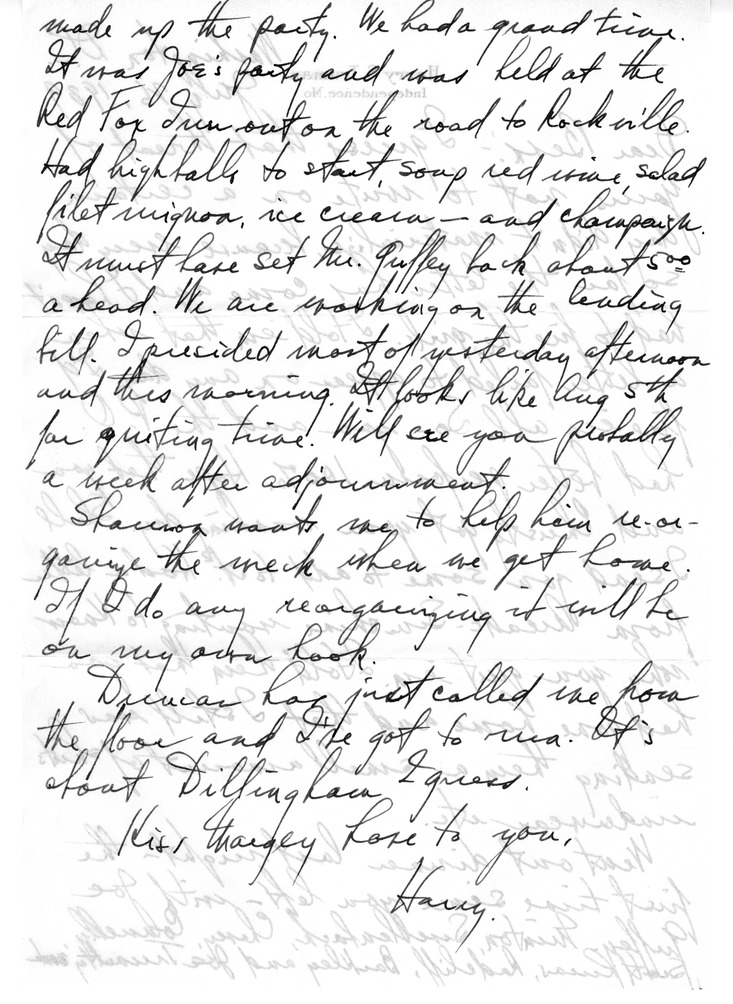 made up the party. We had a grand time.
It was Joe's party and was held at the
Red Fox Inn out on the road to Rockville.
Had highballs to start, soup red wine, salad
filet mignon, ice cream — and champaign.
It must have set Mr. Guffey back about 5 00
a head. We are working on the lending
bill. I presided most of yesterday afternoon
and this morning. It looks like Aug 5th
for quiting time. Will see you probally
a week after adjournment.
Shannon wants me to help him re-or-
ganize the week when we get home.
If I do any reorganizing it will be
on my own hook.
Duncan has just called me from
the floor and I've got to run. It's
about Dillingham I guess.
Kiss Margey love to you,
Harry.